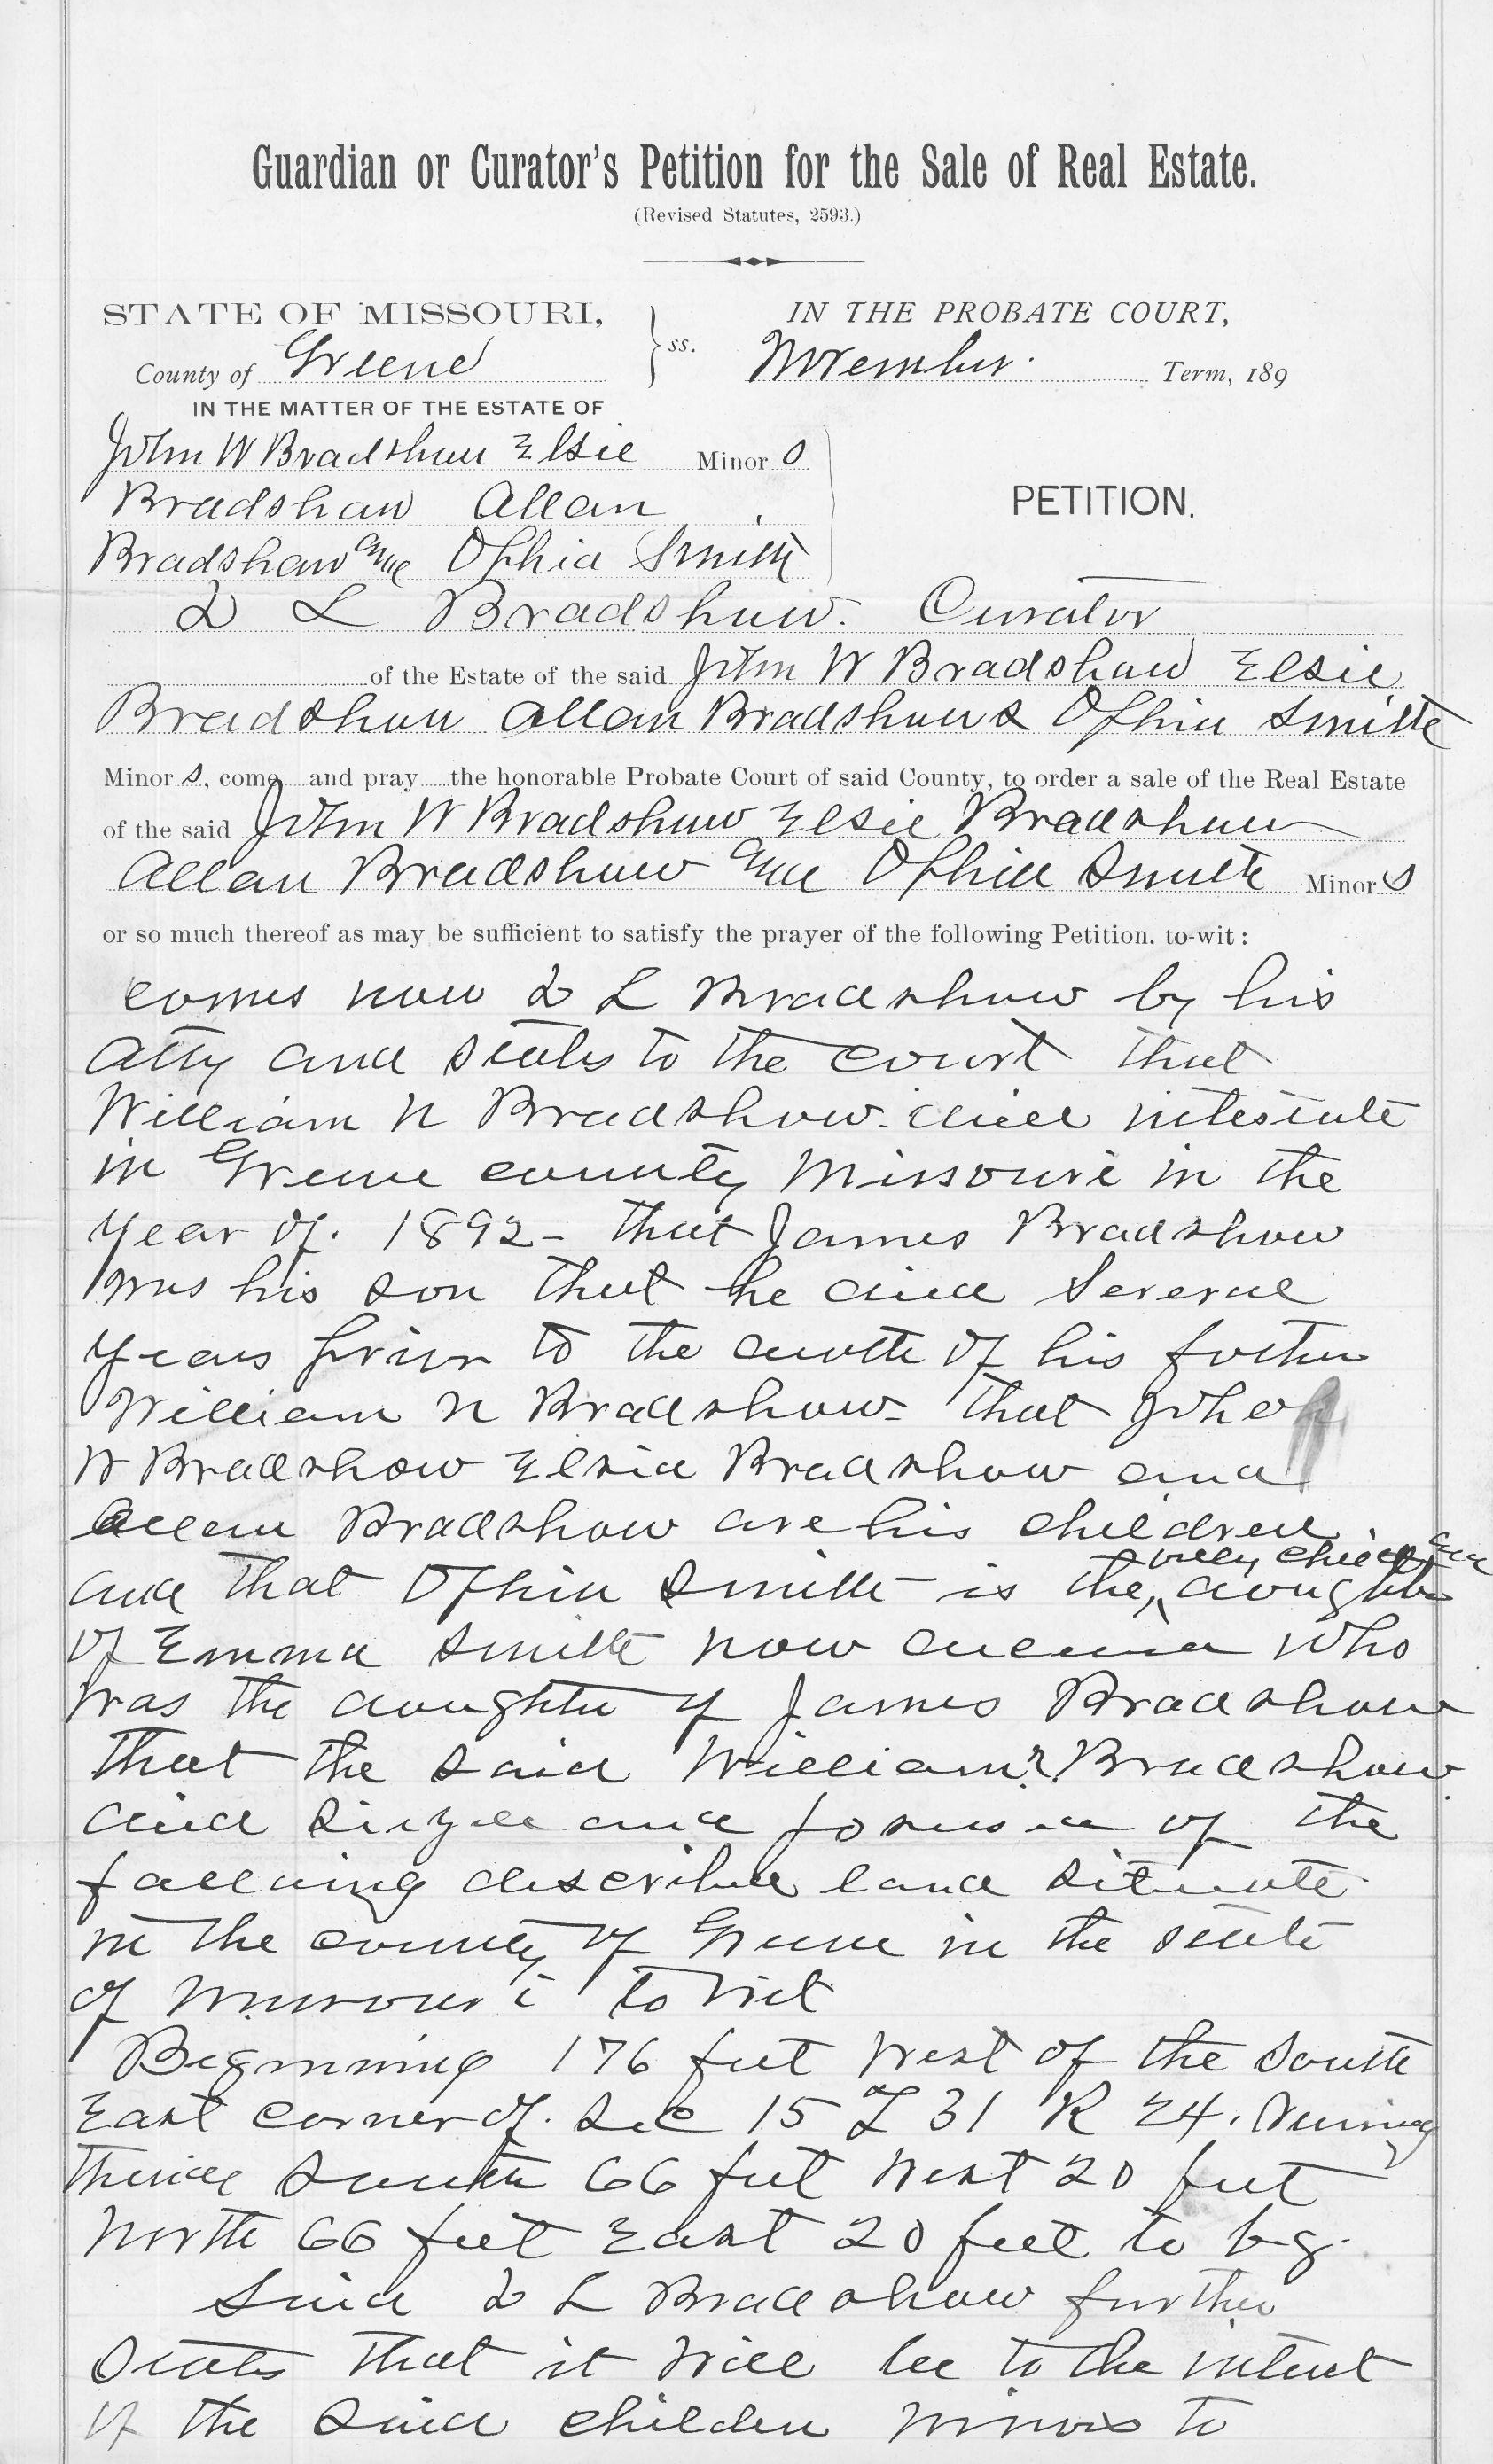 Guardian or Curator's Petition for the Sale of Real Estate.
(Revised Statutes, 2593.)
STATE OF MISSOURI,
County of Greene
ss.
IN THE PROBATE COURT,
November. Term, 189
IN THE MATTER OF THE ESTATE OF
John W Bradshaw Elsie Minor s
Bradshaw Allan
Bradshaw and Ophia Smith
PETITION.
L Bradshaw. Curator
of the Estate of the said John W Bradshaw Elsie
Bradshaw Allan Bradshaw & Ophia Smith
Minor s, come and pray the honorable Probate Court of said County, to order a sale of the Real Estate
of the said John W Bradshaw Elsie Bradshaw
Allan Bradshaw and Ophia Smith Minor s
or so much thereof as may be sufficient to satisfy the prayer of the following Petition, to-wit:
comes now L Bradshaw by his
atty and states to the court that
William N Bradshaw died intestate
in Greene county Missouri in the
year of. 1892 - that James Bradshaw
was his son that he died several
years prior to the death of his father
William N Bradshaw - that John
W Bradshaw Elsia Bradshaw and
Allan Bradshaw are his children.
and that Ophia Smith is the only child and daughter
of Emma Smith now deceased who
was the daughter of James Bradshaw
that the said William N. Bradshaw
died siezed and possessed of the
following described land situate
in the county of Greene in the state
of Missouri to wit
Beginning 176 feet west of the South
East corner of. Sec 15 T 31 R 24. running
thence South 66 feet West 20 feet
North 66 feet East 20 feet to bg.
Said L Bradshaw further
states that it will be to the intrest
of the said children minors to